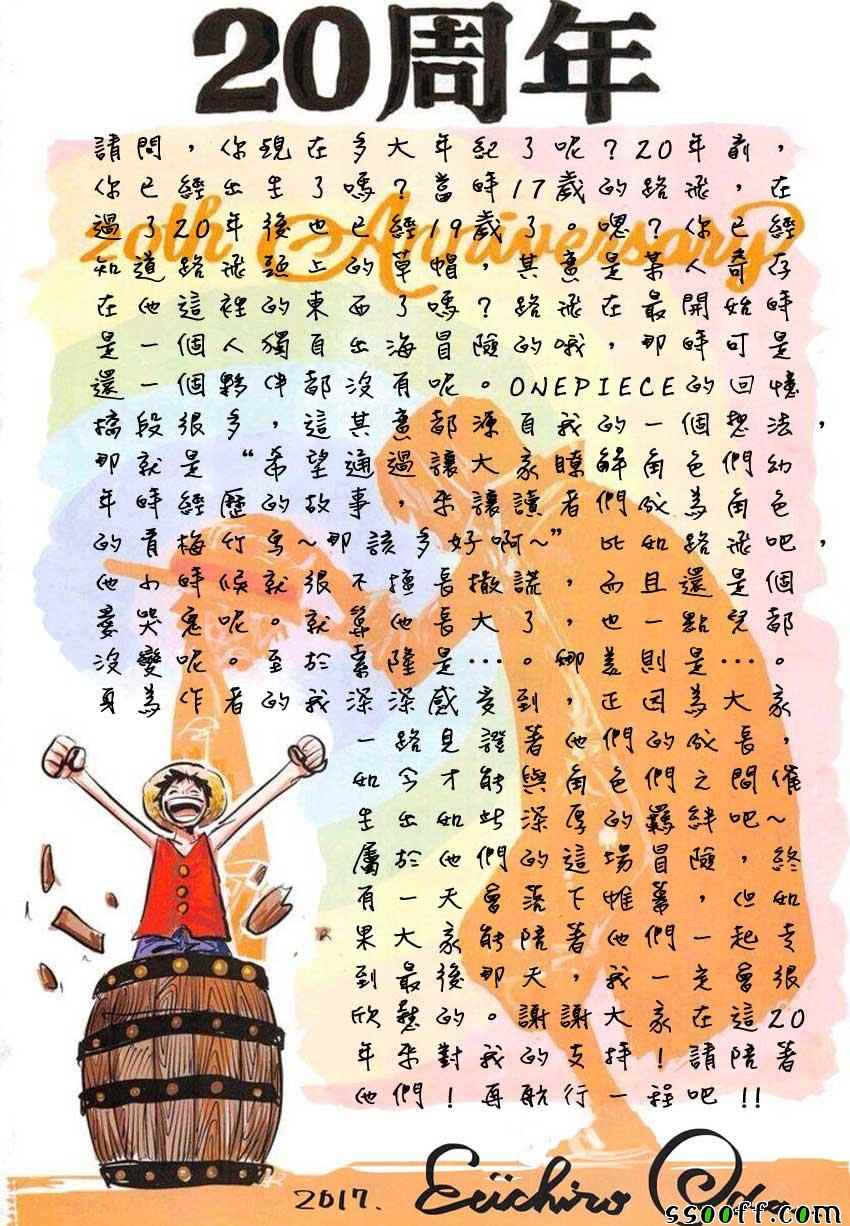 20周年
請問，你現在多大年紀了呢？20年前，
你已經出生了嗎？當時17歲的路飛，在
過了20年後也已經19歲了。嗯？你已經
20th Anniversary
知道路飛頭上的草帽，其實是某人寄存
在他這裡的東西了嗎？路飛在最開始時
是一個人獨自出海冒險的哦，那時可是
還一個夥伴都沒有呢。ONEPIECE的回憶
橋段很多，這其實都源自我的一個想法，
那就是“希望通過讓大家瞭解角色們幼
年時經歷的故事，來讓讀者們成為角色
的青梅竹馬~那該多好啊~” 比如路飛吧，
他小時候就很不擅長撒謊，而且還是個
愛哭鬼呢。就算他長大了，也一點兒都
沒變呢。至於索隆是…。娜美則是…。
身為作者的我深深感受到，正因為大家
一路見證著他們的成長，
如今才能與角色們之間催
生出如此深厚的羈絆吧~
屬於他們的這場冒險，終
有一天會落下帷幕，但如
果大家能陪著他們一起走
到最後那天，我一定會很
欣慰的。謝謝大家在這20
年來對我的支持！請陪著
他們！再航行一程吧！！
2017. Eiichiro Oda
ssooff.com